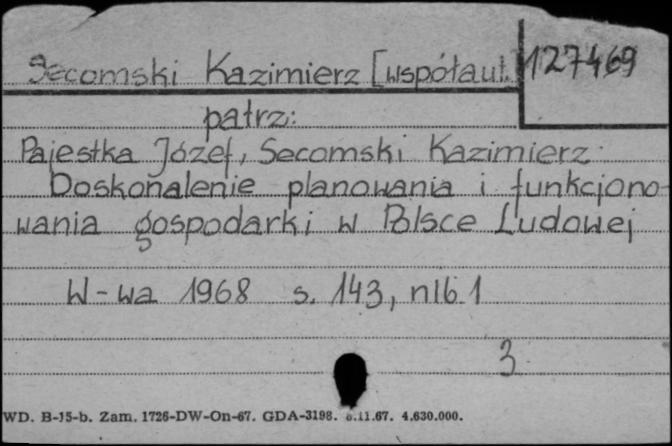 Secomski Kazimierz [współaut.]
127469
patrz:
Pajestka Józef, Secomski Kazimierz
Doskonalenie planowania i funkcjono-
wania gospodarki w Polsce Ludowej
W-wa 1968 s. 143, nlb 1
3
WD. B-15-b. Zam. 1726-DW-On-67. GDA-3198. 6.11.67. 4.630.000.